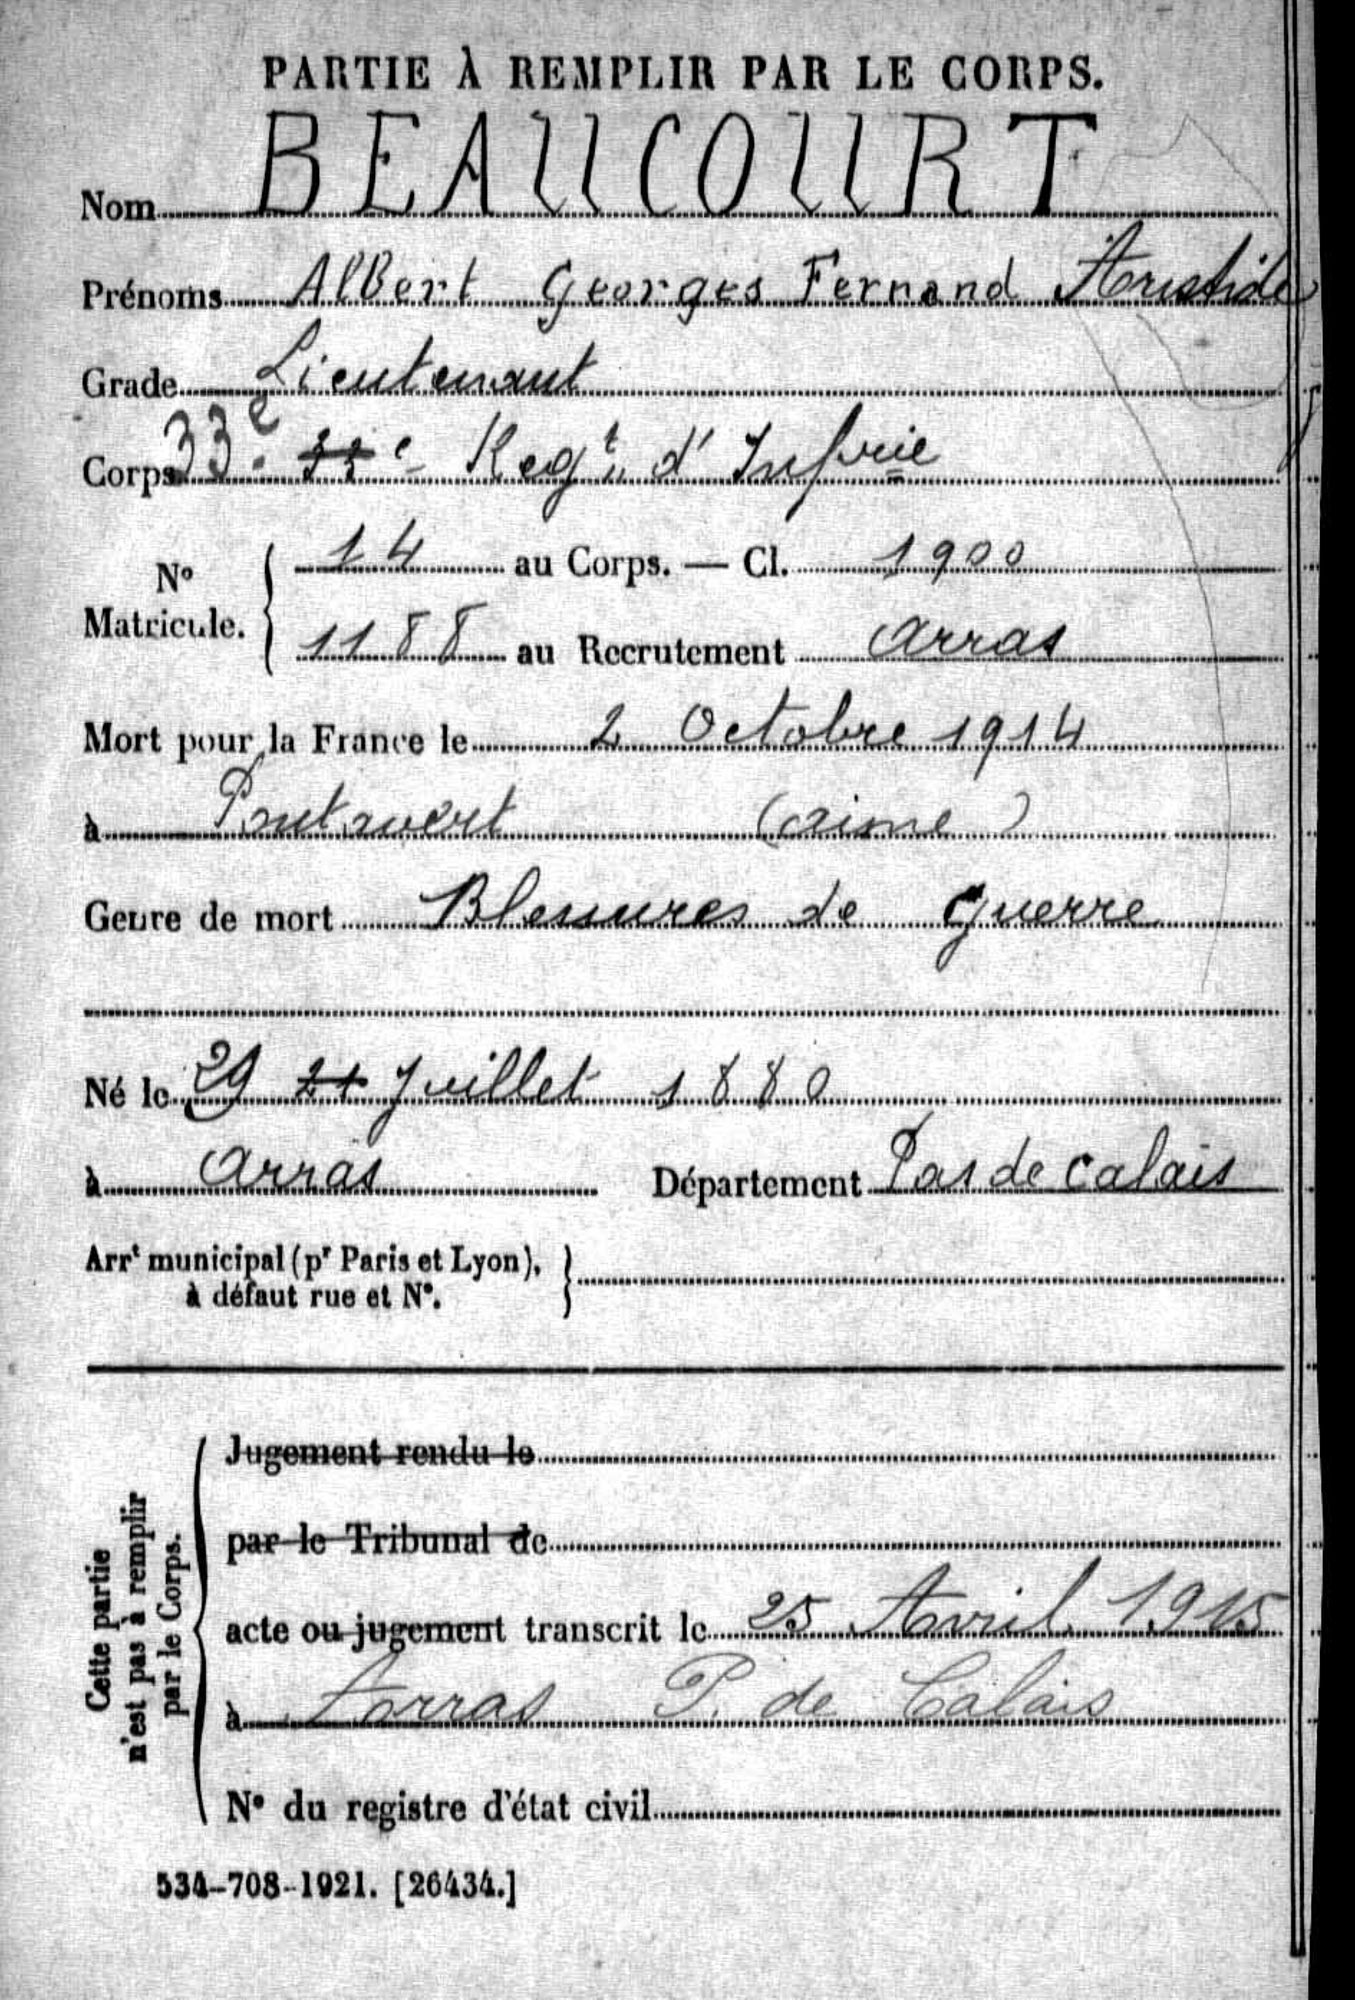 PARTIE À REMPLIR PAR LE CORPS.
Nom BEAUCOURT
Prénoms Albert Georges Fernand Aristide
Grade Lieutenant
Corps 33e 33e Regt. d'Infrie
No Matricule. { 14 au Corps. — Cl. 1900
1188 au Recrutement Arras
Mort pour la France le 2 Octobre 1914
à Pontavert (aisne)
Genre de mort Blessures de Guerre
Né le 29 21 Juillet 1880
à Arras Département Pas de Calais
Arrt municipal (pr Paris et Lyon), }
à défaut rue et No.
Cette partie
n'est pas à remplir
par le Corps.
Jugement rendu le
par le Tribunal de
acte ou jugement transcrit le 25 Avril 1915
à Arras P. de Calais
No du registre d'état civil
534-708-1921. [26434.]